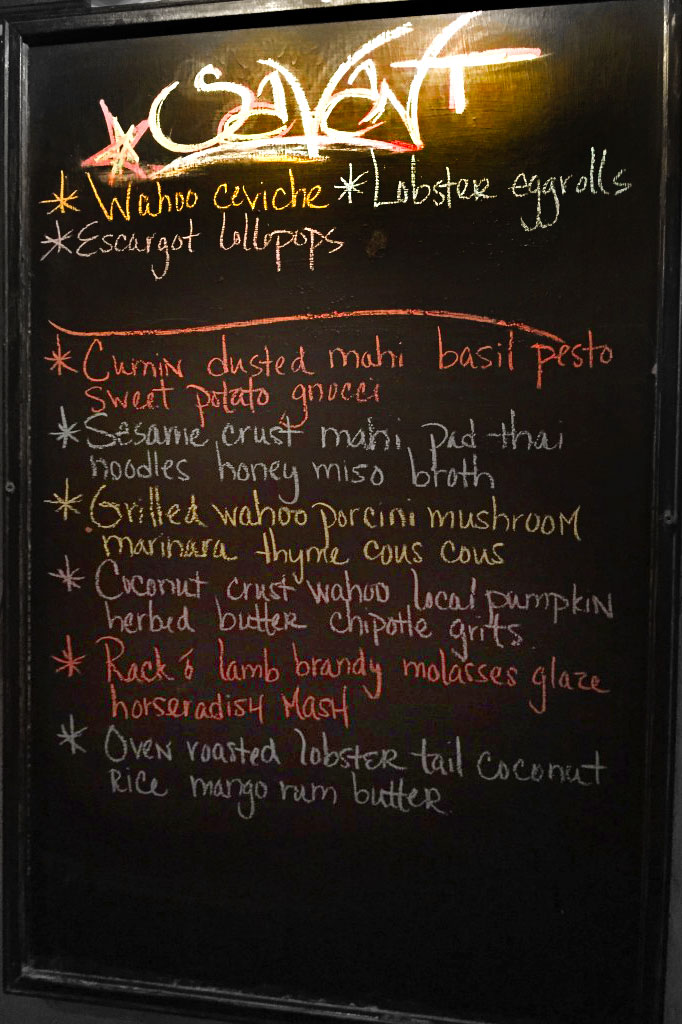 Savant
* Wahoo ceviche * Lobster eggrolls
* Escargot lollopops
* Cumin dusted mahi basil pesto
sweet potato gnocci
* Sesame crust mahi pad thai
noodles honey miso broth
* Grilled wahoo porcini mushroom
marinara thyme cous cous
* Coconut crust wahoo local pumpkin
herbed butter chipotle grits
* Rack o lamb brandy molasses glaze
horseradish mash
* Oven roasted lobster tail coconut
rice mango rum butter